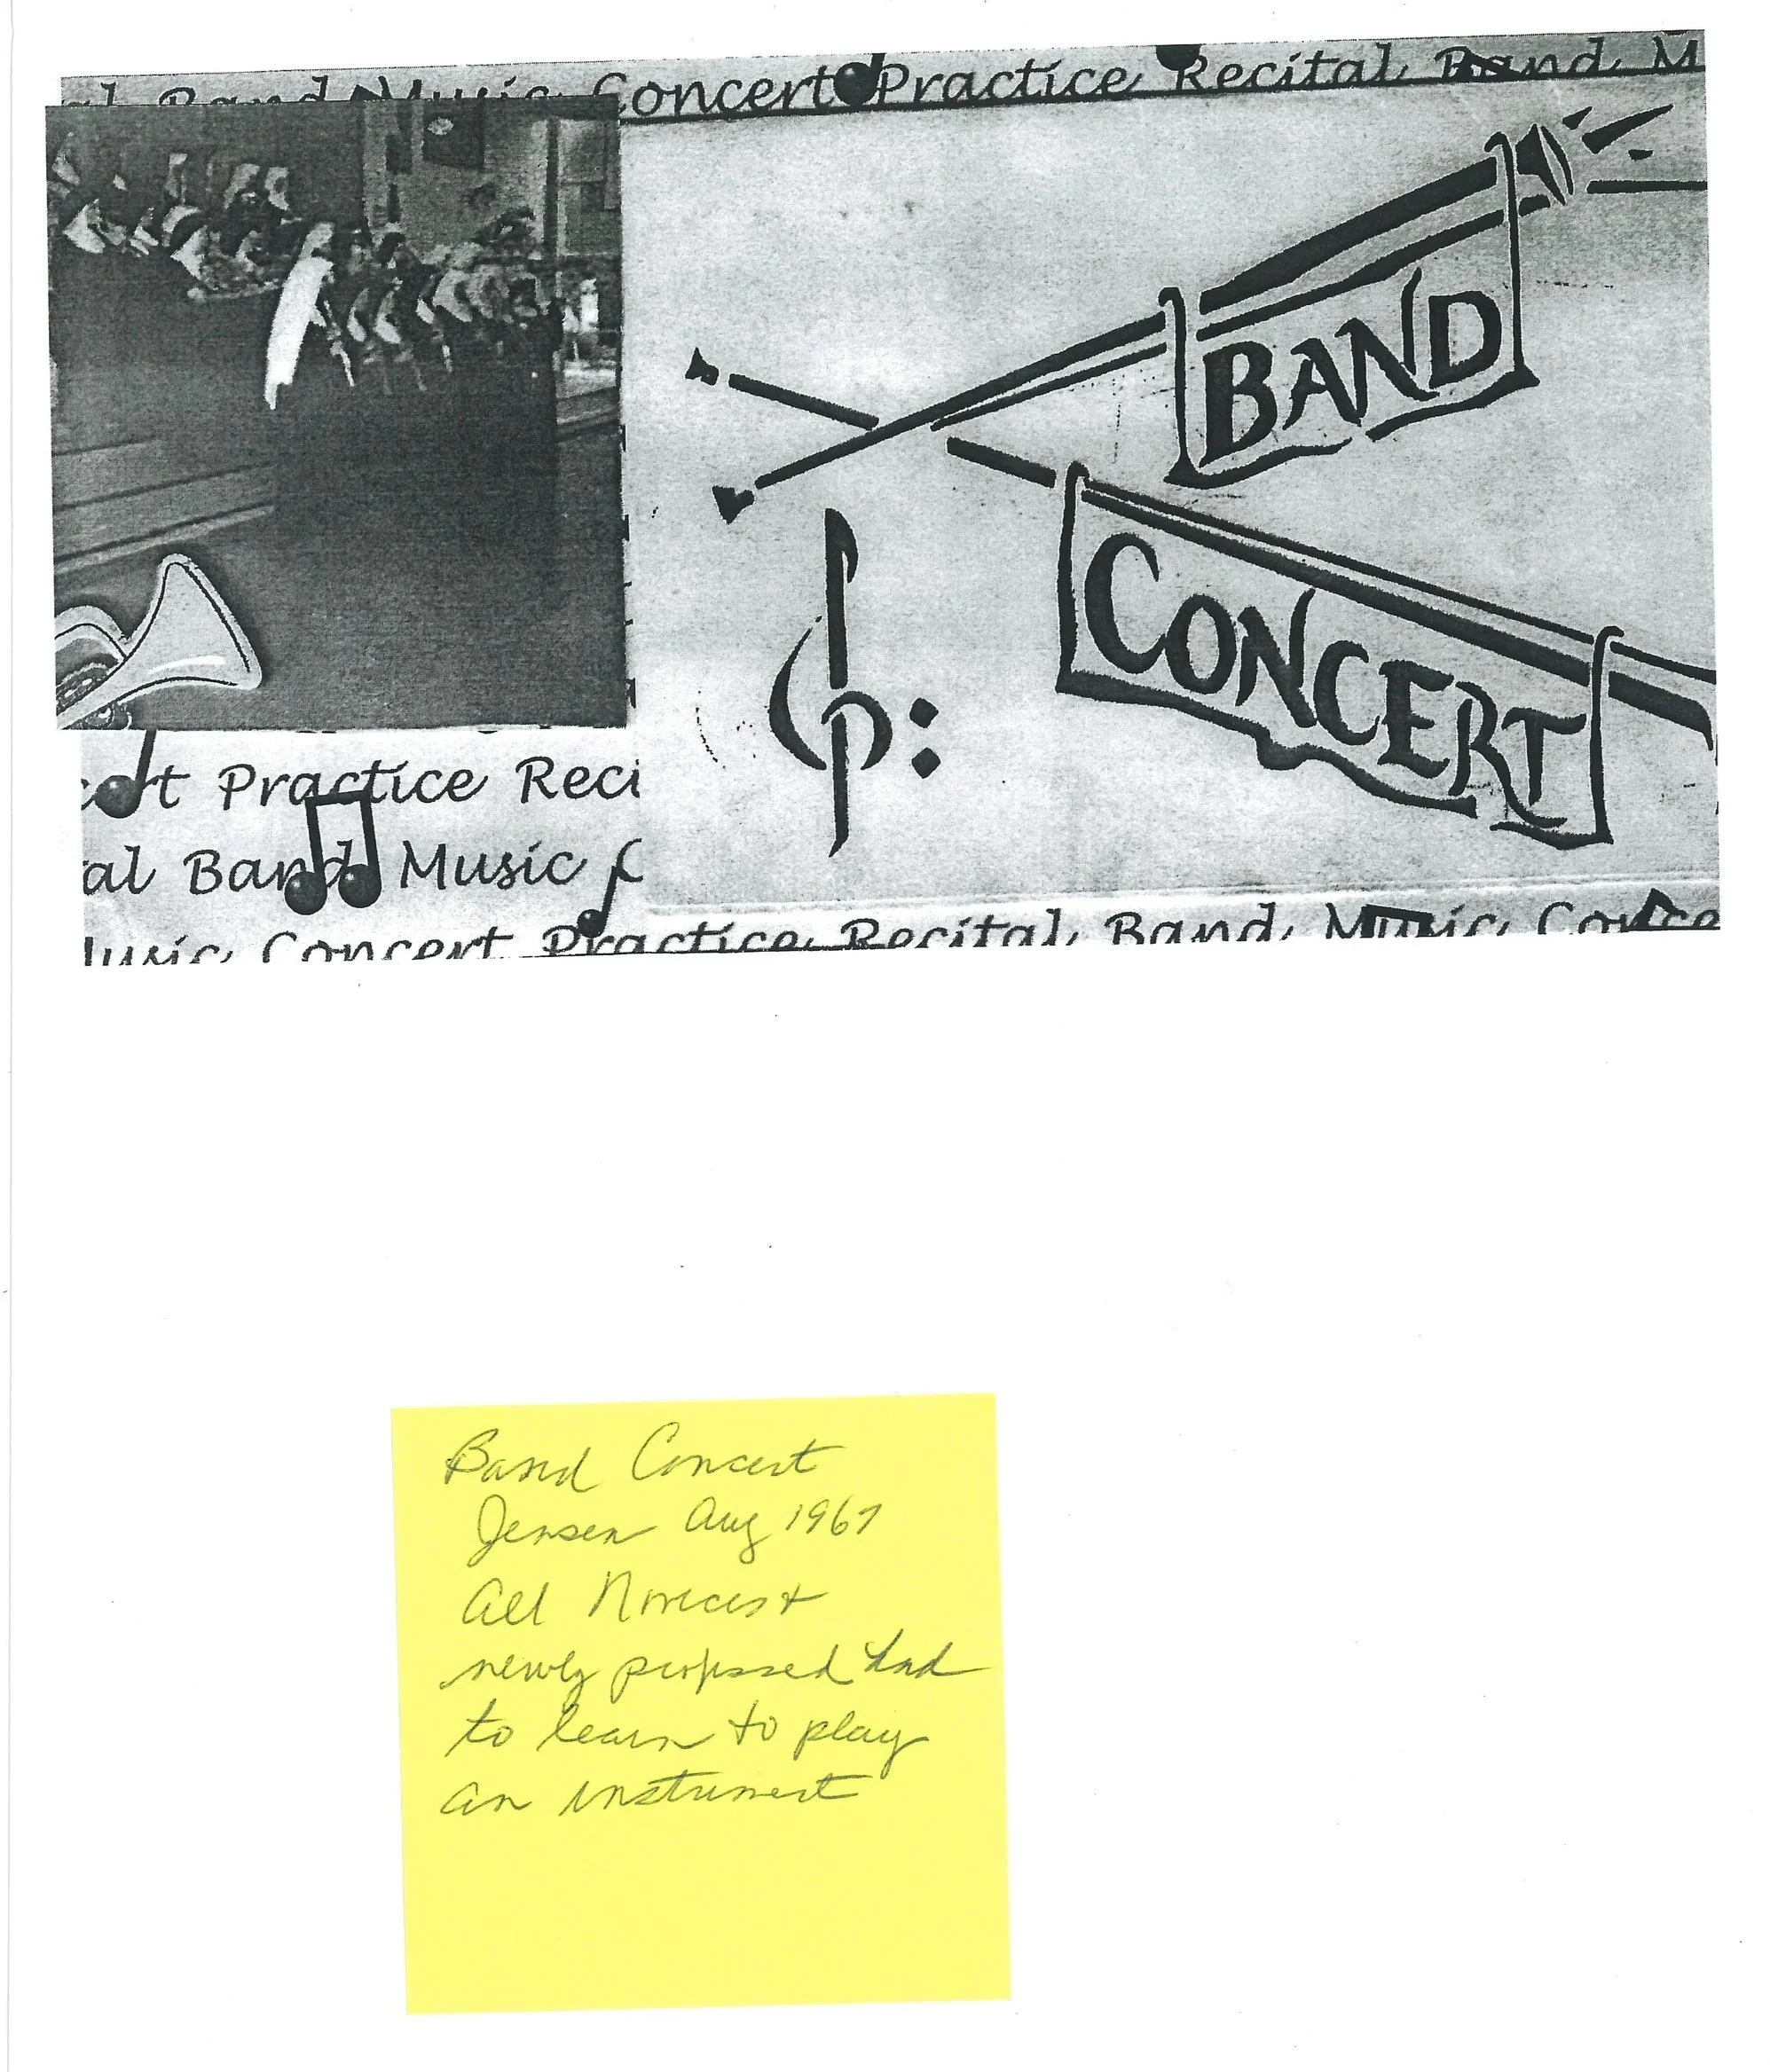 al Band Music Concert Practice Recital Band M
BAND
CONCERT
cert Practice Reci
al Band Music C
Music Concert Practice Recital Band Music Conce
Band Concert
Jensen Aug 1967
All Novices +
newly professed had
to learn to play
an instrument